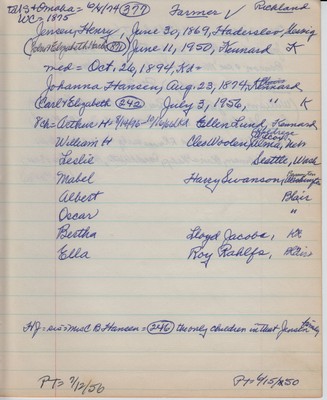 US + Omaha = 6/4/74 (377) Farmer ✓ Richland
WC = 1875
Jensen, Henry, June 30, 1869, Haderslev,
June 11, 1950, Kennard K
med = Oct, 26, 1894, Kd =
Johanna Hansen, Aug. 23, 1874, Kennard
Carl + Elizabeth (242) July 3, 1956, " K
8ch = Arthur H = Ellen Lund, Kennard
William H Cleo Wooten, Alma, Neb
Leslie Seattle, Wash
Mabel Harry Swanson, Washington
Albert Blair
Oscar "
Bertha Lloyd Jacobs,
Ella Roy Rahlfs, Blair
HJ = sis = Mrs C B Hansen = (246) the only children in that Jensen family
PT = 7/12/56 PT = 6/15/50